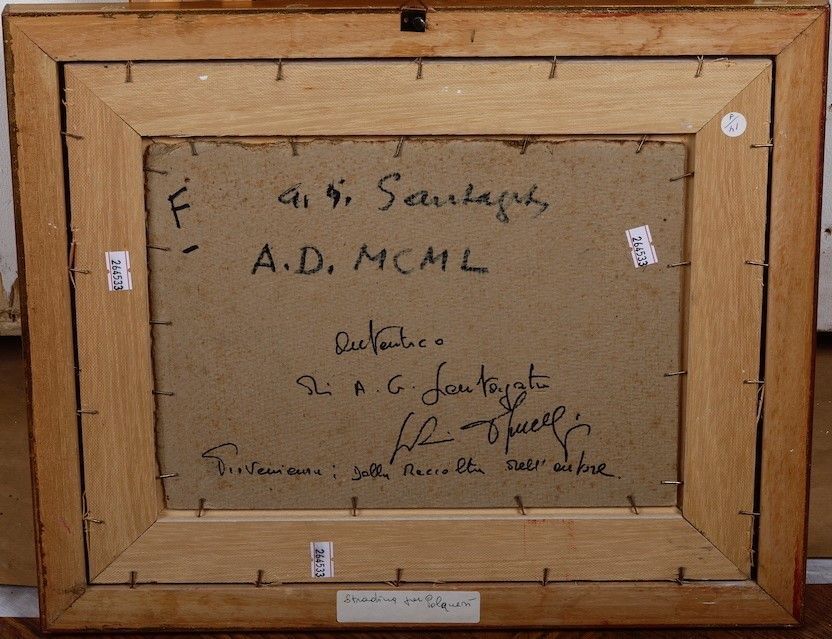 F/41
F
a. G. Santagata
A.D. MCML
264533
264533
Autentico
di A. G. Santagata
Provenienza: dalla raccolta dell'autore.
264533
Stradina per